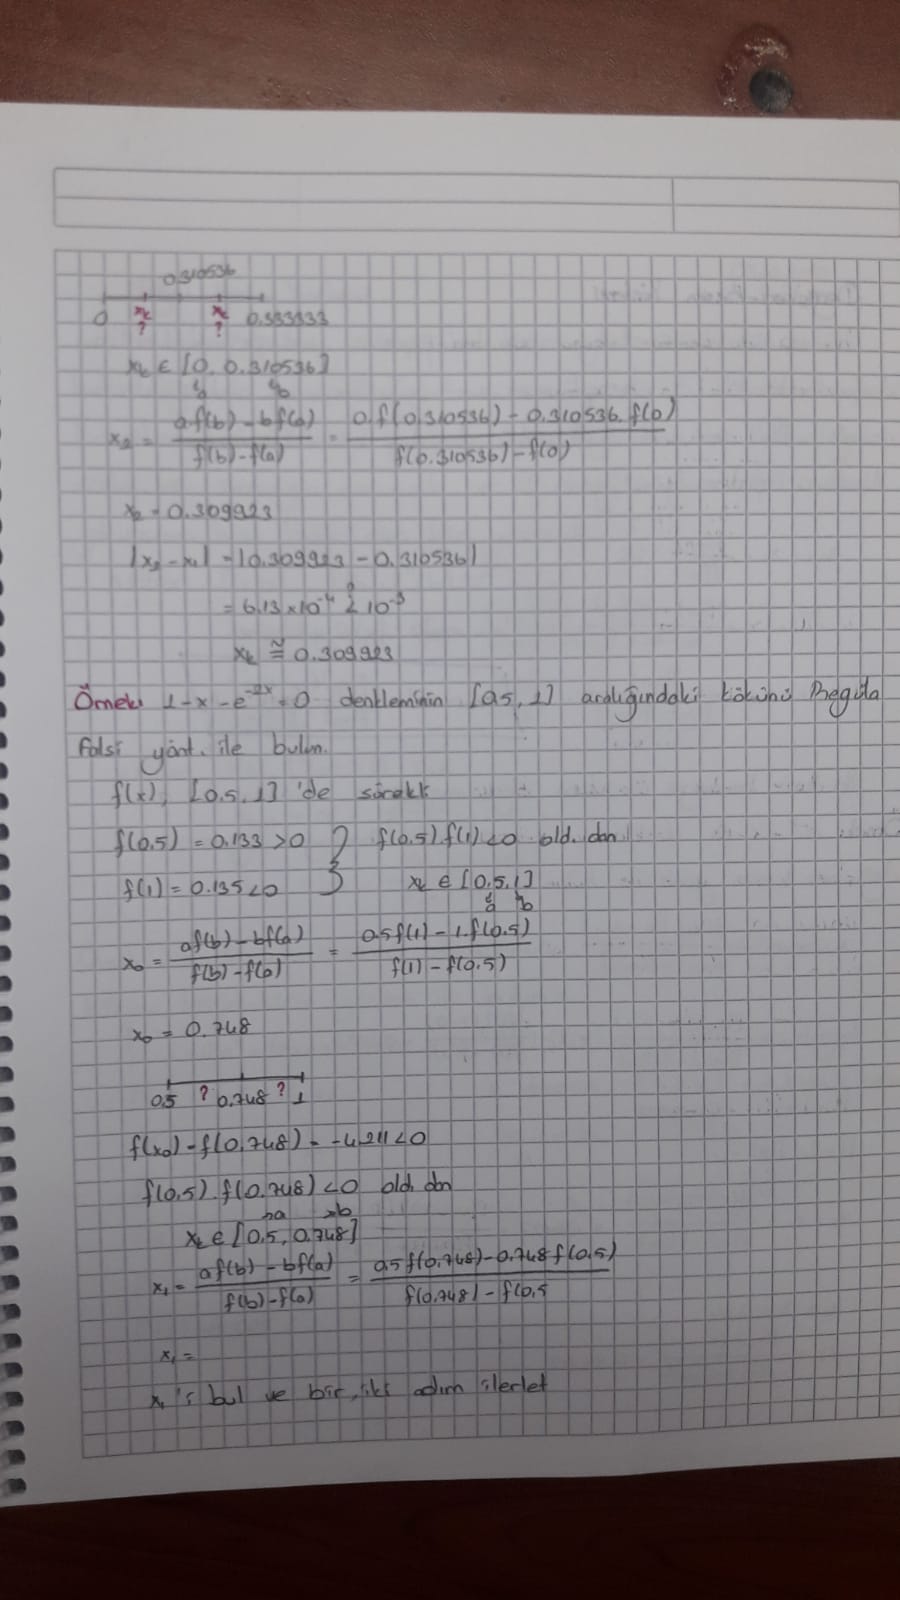 0.310536
0 x_k ? x_k ? 0.333333
x_k ∈ [0, 0.310536]
a b
x_2 = (a f(b) - b f(a)) / (f(b) - f(a)) = (0.f(0.310536) - 0.310536.f(0)) / (f(0.310536) - f(0))
x_2 = 0.309923
|x_2 - x_1| = |0.309923 - 0.310536|
= 6.13 x 10^-4 <? 10^-3
x_k ≅ 0.309923
Örnek: 1-x-e^-2x = 0 denkleminin [0.5, 1] aralığındaki kökünü Regula
Falsi yönt. ile bulun.
f(x), [0.5, 1] 'de sürekli
f(0.5) = 0.133 > 0 } f(0.5).f(1) < 0 old. dan
f(1) = 0.135 < 0 x_k ∈ [0.5, 1]
a b
x_0 = (a f(b) - b f(a)) / (f(b) - f(a)) = (0.5 f(1) - 1.f(0.5)) / (f(1) - f(0.5))
x_0 = 0.748
0.5 ? 0.748 ? 1
f(x_0) = f(0.748) = -4.211 < 0
f(0.5).f(0.748) < 0 old. dan
a b
x_k ∈ [0.5, 0.748]
x_1 = (a f(b) - b f(a)) / (f(b) - f(a)) = (0.5 f(0.748) - 0.748 f(0.5)) / (f(0.748) - f(0.5
x_1 =
x_1 'i bul ve bir, iki adım ilerlet